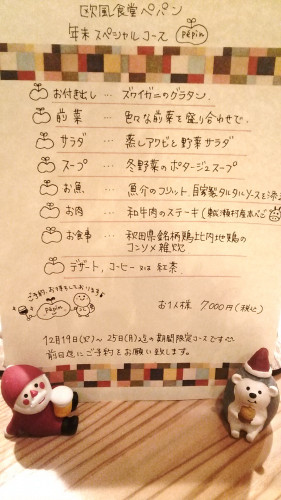 欧風食堂ペパン
年末スペシャルコース pépin
お付き出し … ズワイガニのグラタン.
前菜 … 色々な前菜を盛り合わせで.
サラダ … 蒸しアワビと野菜サラダ
スープ … 冬野菜のポタージュスープ
お魚 … 魚介のフリット、自家製タルタルソースを添え
お肉 … 和牛肉のステーキ
お食事 … 秋田県銘柄鶏比内地鶏の
コンソメ雑炊
デザート, コーヒー or 紅茶
ご予約、お待ちしております
pépin
お1人様 7000円(税込)
12月19日(火)~25日(月)迄の期間限定コースです
前日迄にご予約をお願い致します。